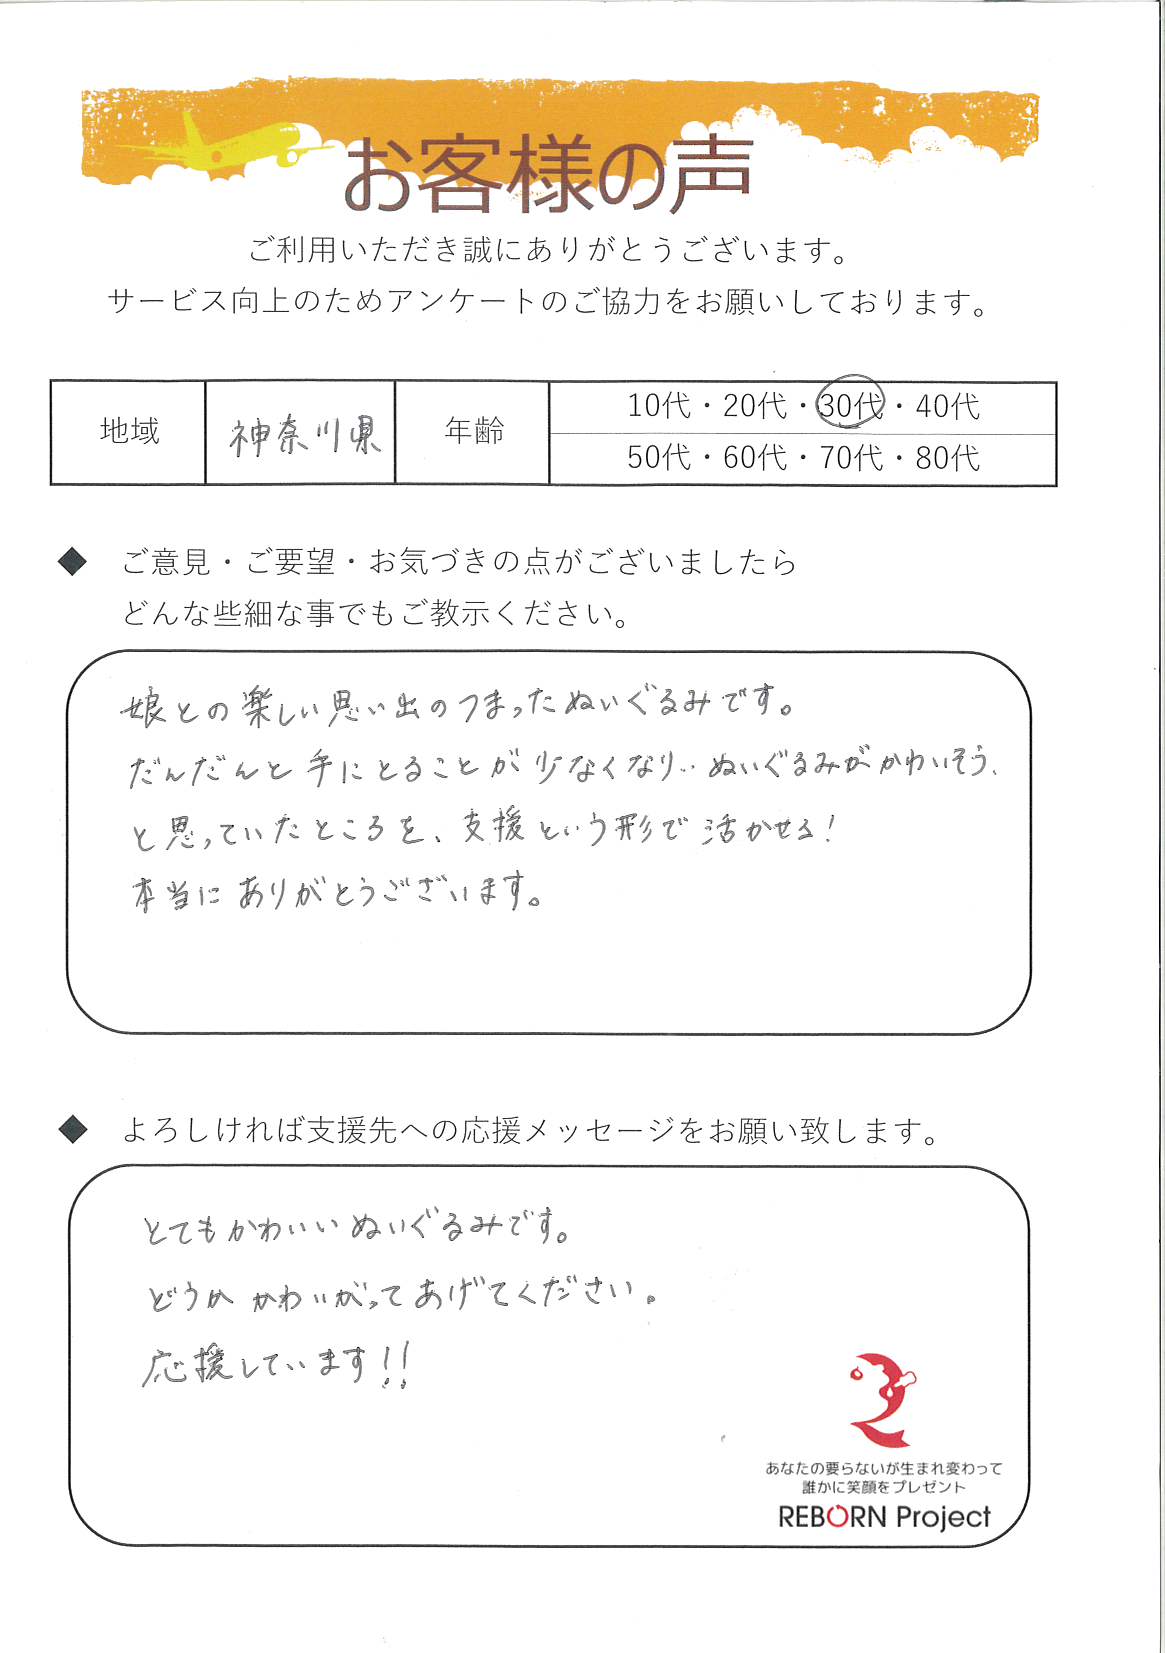 お客様の声
ご利用いただき誠にありがとうございます。
サービス向上のためアンケートのご協力をお願いしております。
地域
神奈川県
年齢
10代・20代・30代・40代
50代・60代・70代・80代
◆ ご意見・ご要望・お気づきの点がございましたら
どんな些細な事でもご教示ください。
娘との楽しい思い出のつまったぬいぐるみです。
だんだんと手にとることが少なくなり‥ぬいぐるみがかわいそう、
と思っていたところを、支援という形で活かせる!
本当にありがとうございます。
◆ よろしければ支援先への応援メッセージをお願い致します。
とてもかわいいぬいぐるみです。
どうかかわいがってあげてください。
応援しています!!
あなたの要らないが生まれ変わって
誰かに笑顔をプレゼント
REBORN Project